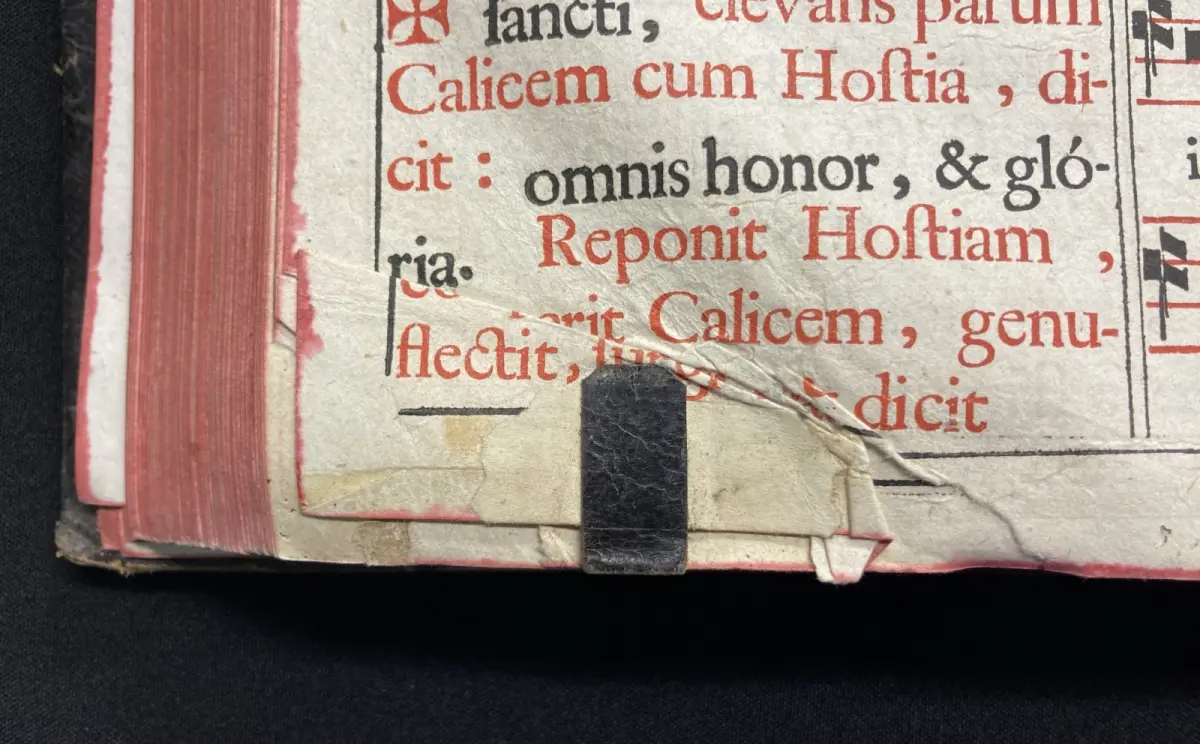 ✠ ſancti, elevans parum
Calicem cum Hoſtia, di-
cit : omnis honor, & gló-
ria. Reponit Hoſtiam,
Calicem, genu-
flectit, dicit